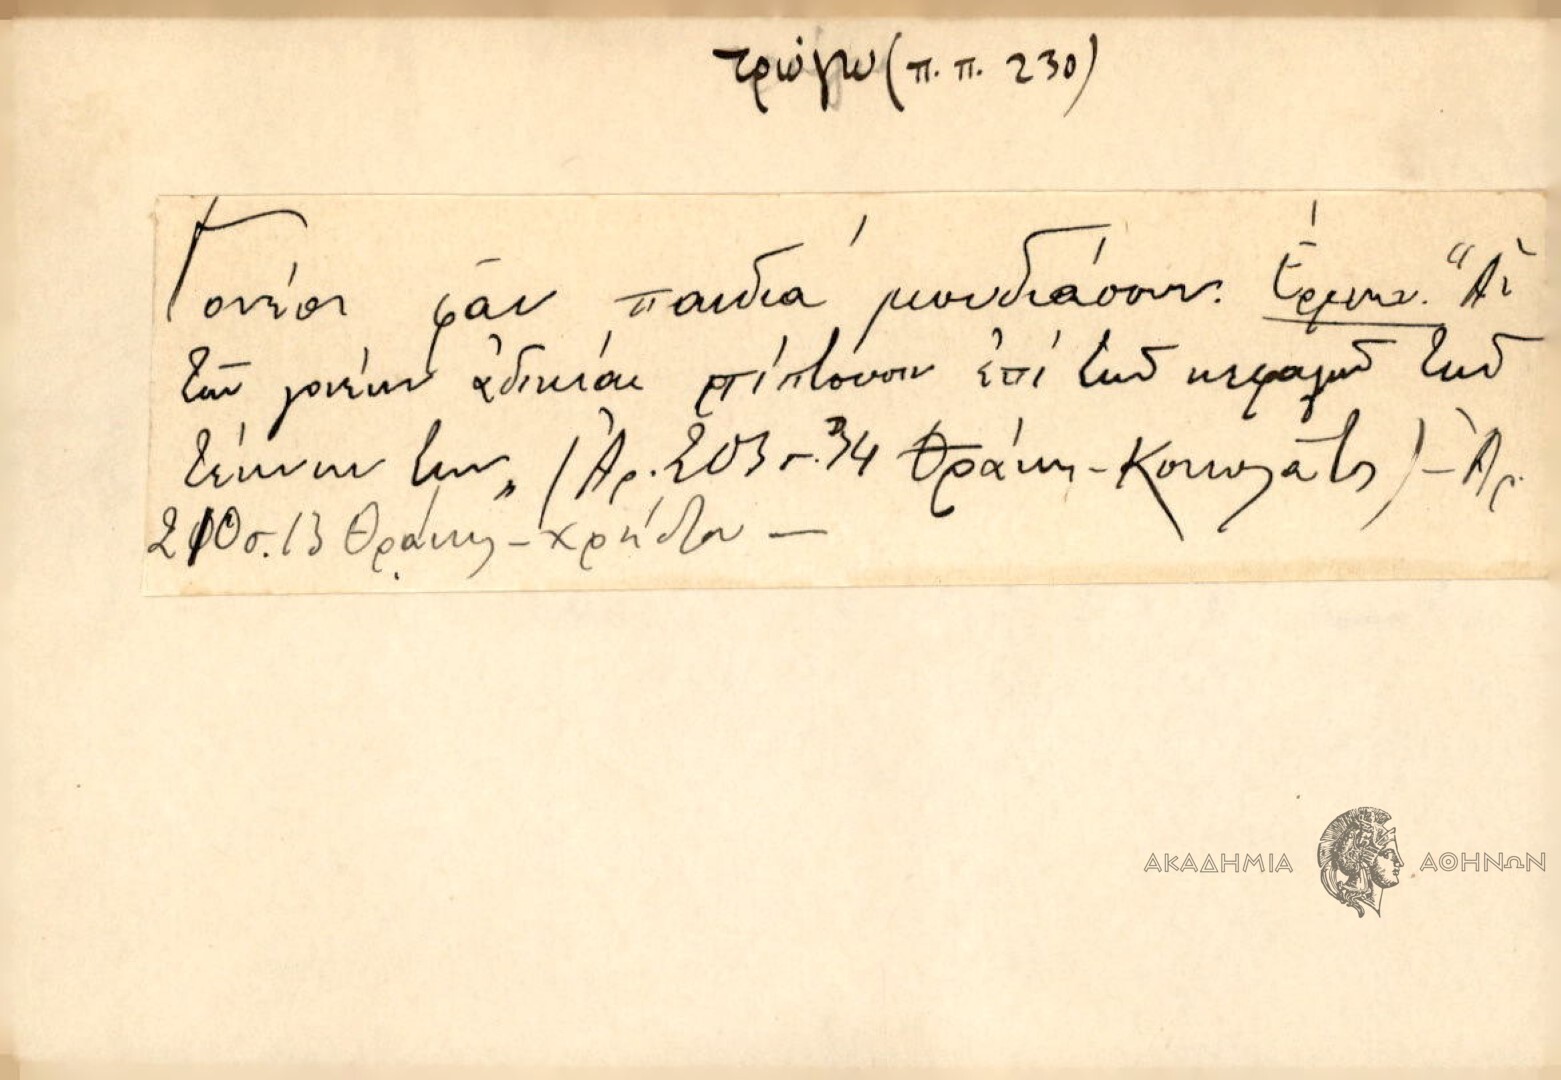 τρώγω (π. π. 230)
Γονέοι φᾶν παιδιά μουδιάσουν. Ἑρμην. "Αἱ
τῶν γονέων ἀδικίαι πίπτουσιν ἐπί τῶν κεφαλῶν τῶν
τέκνων των„ (Ἀρ. 203 σ. 34 Θράκη - ) - Ἀρ.
210 σ. 13 Θράκη - Χρήστου —
ΑΚΑΔΗΜΙΑ ΑΘΗΝΩΝ